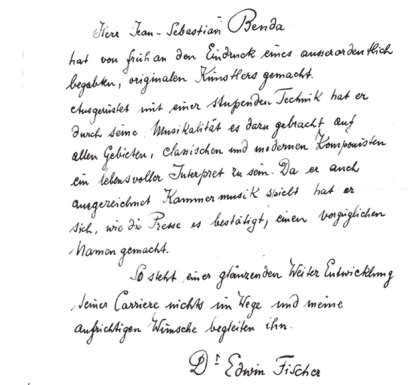 Herr Jean-Sebastian Benda
hat von früh an den Eindruck eines ausserordentlich
begabten, originalen Künstlers gemacht.
Ausgerüstet mit einer stupenden Technik hat er
durch seine Musikalität es dazu gebracht auf
allen Gebieten, classischen und modernen Komponisten
ein lebensvoller Interpret zu sein. Da er auch
ausgezeichnet Kammermusik spielt hat er
sich, wie die Presse es bestätigt, einen vorzüglichen
Namen gemacht.
So steht einer glänzenden Weiter Entwicklung
seiner Carriere nichts im Wege und meine
aufrichtigen Wünsche begleiten ihn.
Dr Edwin Fischer